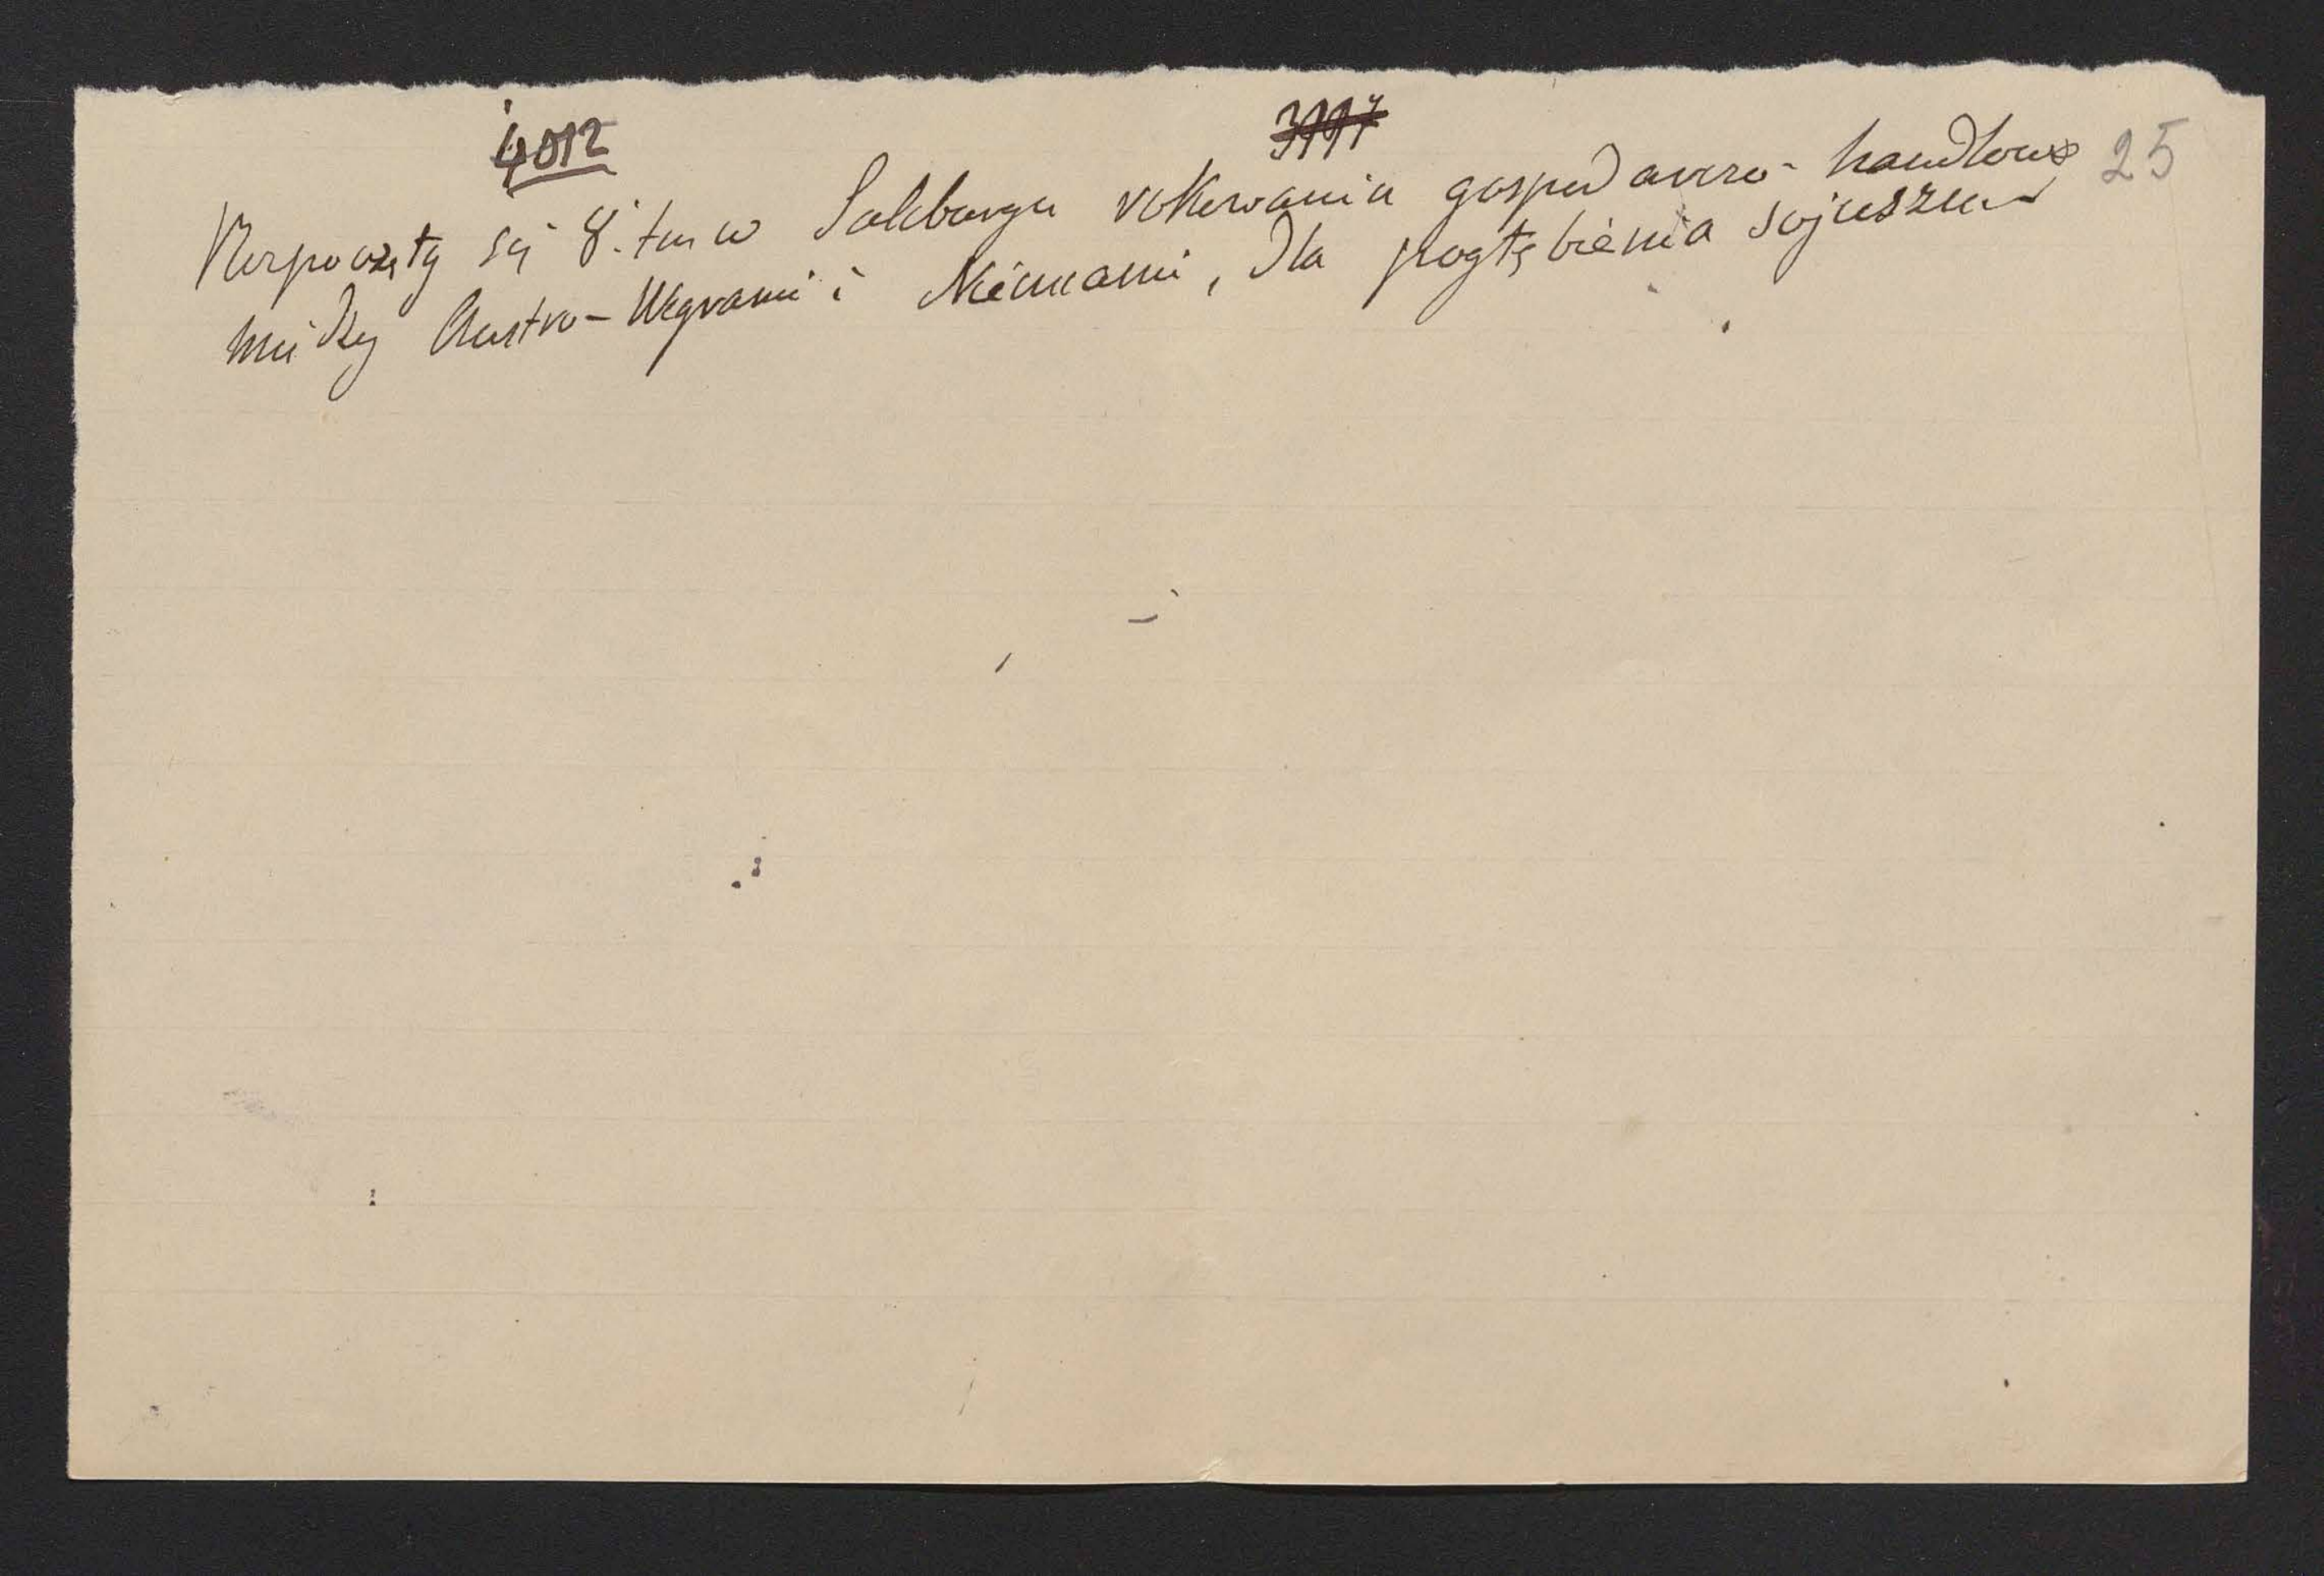 4012 3997
25
Rozpoczęły się 8. tm w Salcburgu rokowania gospodarczo-handlowe
między Austro-Węgrami i Niemcami, dla pogłębienia sojuszu